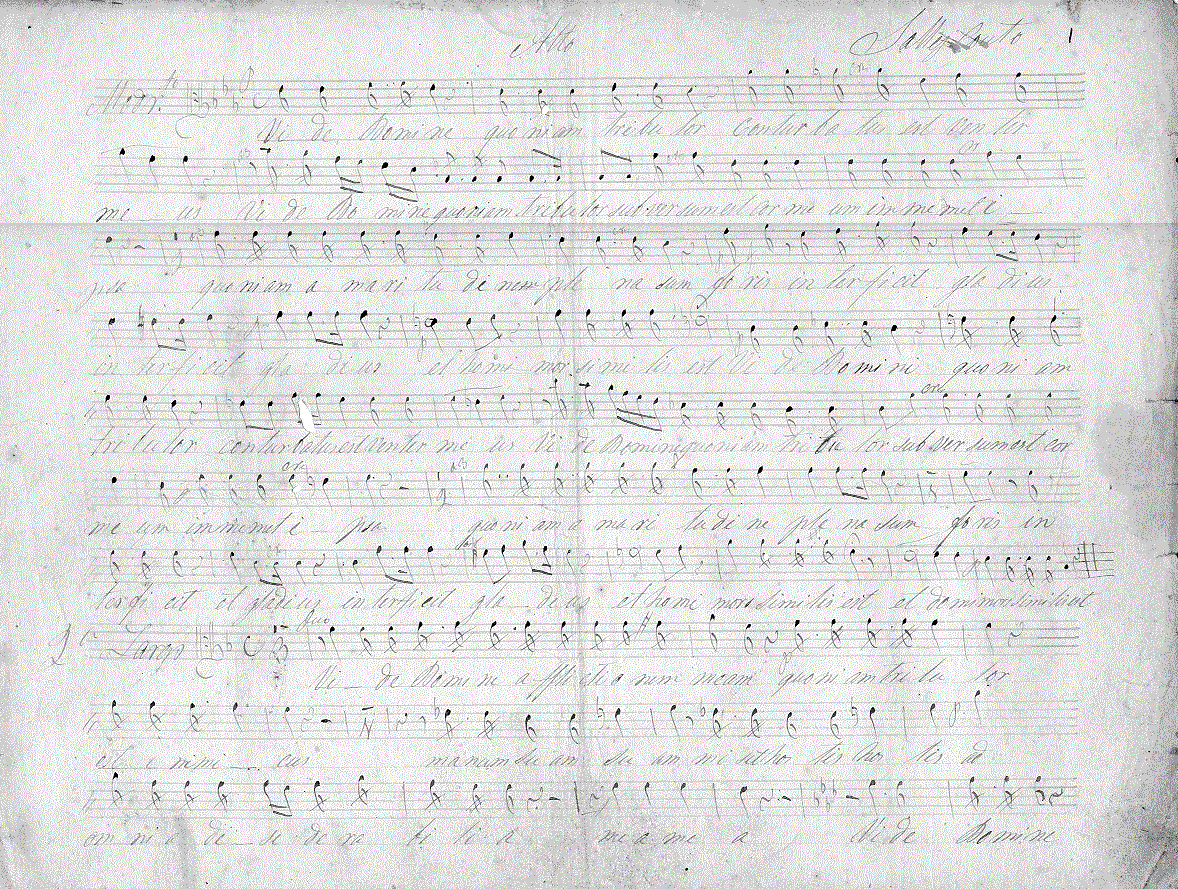 Alto 1
Mod.to
Vi de Domine quoniam tribu lor contur ba tus est venter
me us Vi de Do mine quoniam tribulor subversum est cor me um in memet i
psa quoniam a mari tu di nem ple na sum foris in terficit gla dius
in terficit gla dius et homi mors simi lis est Vi de Domini quo ni am
tribulor conturbatus est venter me us Vi de Domine quoniam tribu lor subversum est cor
me um in memet i psa quo ni am a mari tudi ne ple na sum foris in
terfi cit et gladius in terficit gla dius et homi mors similis est et domi mors similis est
2 Largo
Vi de Domine a ffli cti o nem meam quo ni am tri bu lor
e nimi cus manum su am misit hos tis hos tis ad
om ni a de si de ra bi li a me a me a Vide Domine